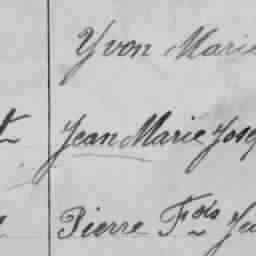 Yvon Marie
Jean Marie Jose
Pierre Fois